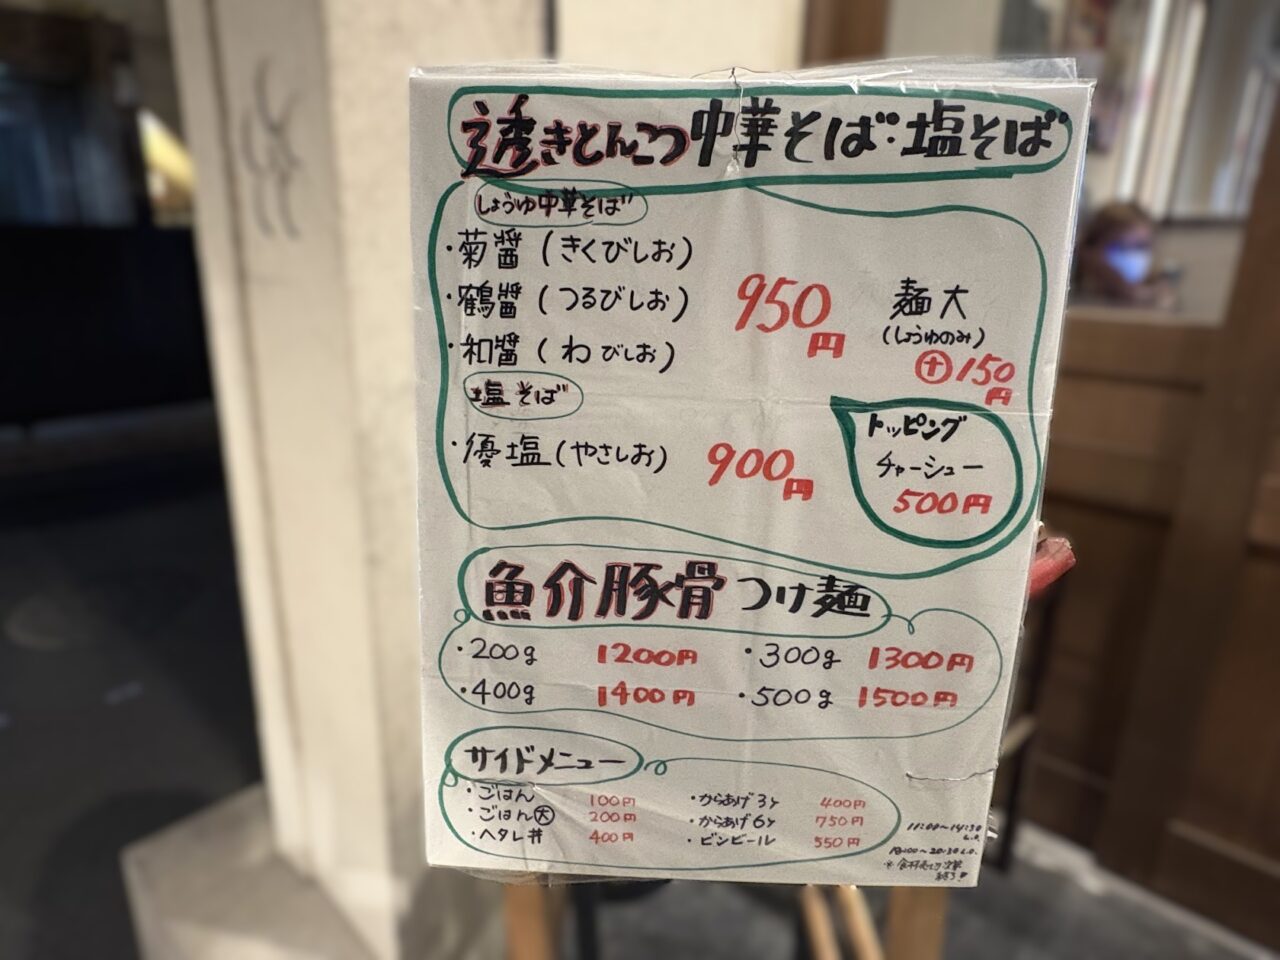 透きとんこつ中華そば・塩そば
しょうゆ中華そば
・菊醤(きくびしお)
・鶴醤(つるびしお)
・和醤(わびしお)
950円
麺大
(しょうゆのみ)
＋150円
塩そば
・優塩(やさしお)
900円
トッピング
チャーシュー
500円
魚介豚骨つけ麺
・200g 1200円 ・300g 1300円
・400g 1400円 ・500g 1500円
サイドメニュー
・ごはん 100円 ・からあげ3ヶ 400円
・ごはん大 200円 ・からあげ6ヶ 750円
・ヘタレ丼 400円 ・ビンビール 550円
11:00〜14:30
L.O.
18:00〜20:30 L.O.